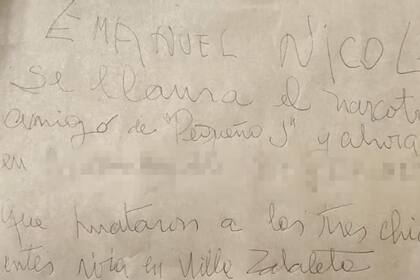 EMANUEL NICOL
Se llama el narcotr
amigo de "Pequeño J" y ahora
en
que mataron a las tres chic
entes vivía en Villa Zabaleta